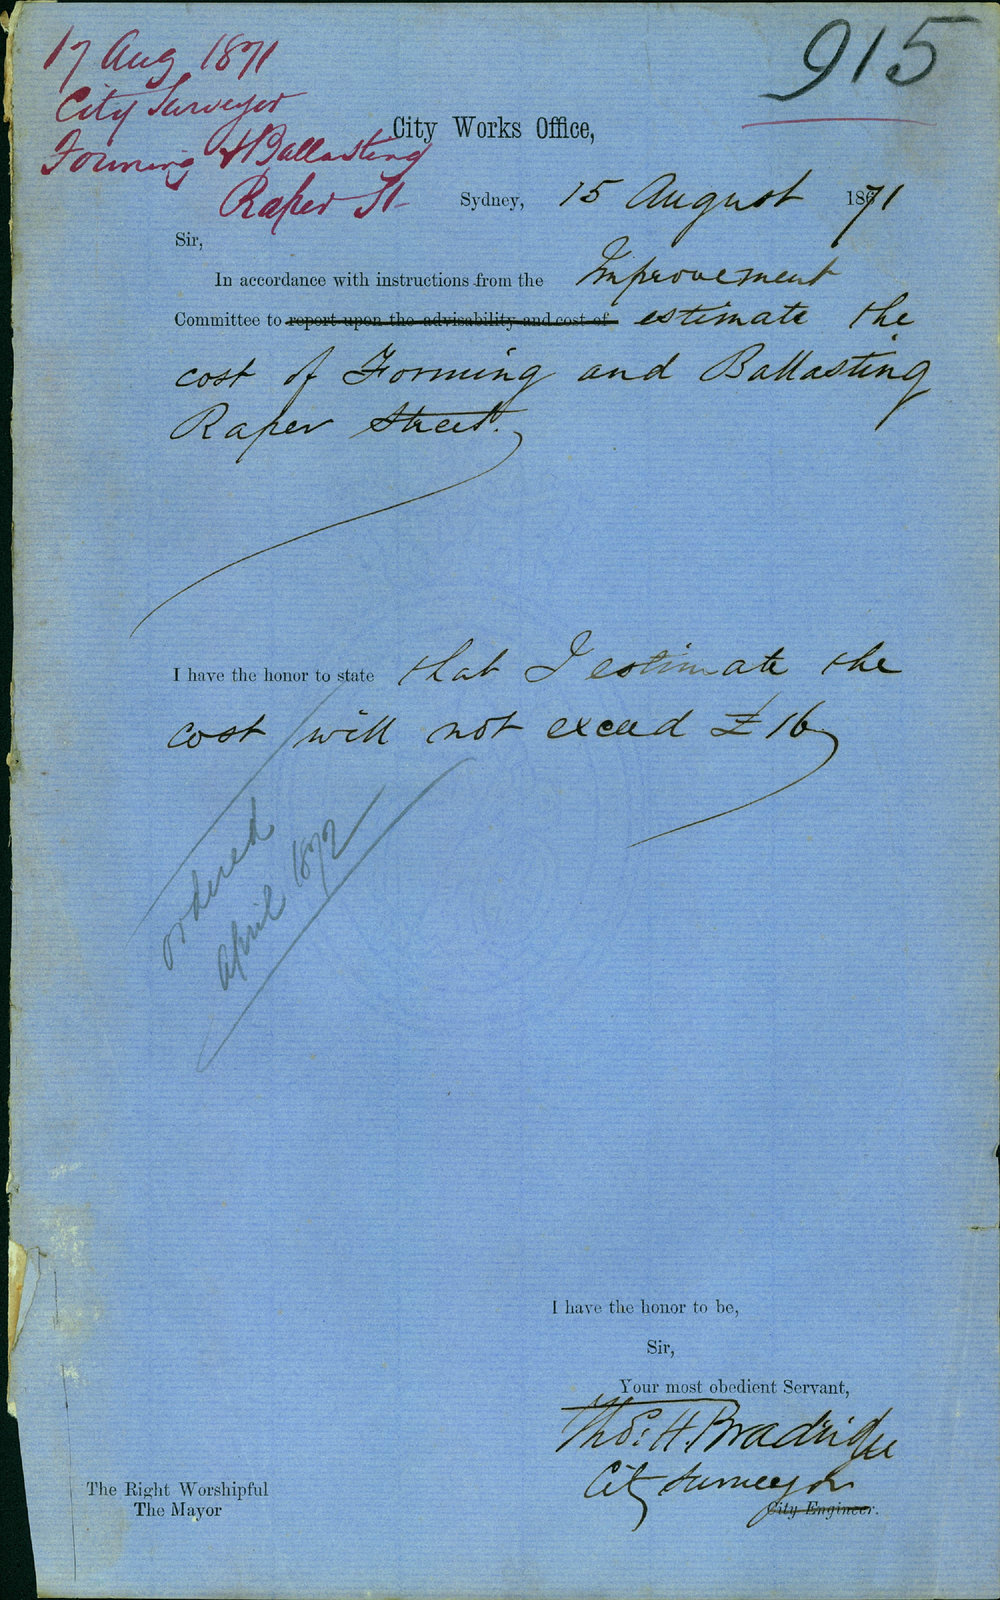 17 Aug 1871
City Surveyor
Forming & Ballasting
Raper St
915
City Works Office,
Sydney, 15 August 1871
Sir,
In accordance with instructions from the Improvement
Committee to report upon the advisability and cost of estimate the
cost of Forming and Ballasting
Raper Street.
I have the honor to state that I estimate the
cost will not exceed £16
ordered
april 1872
I have the honor to be,
Sir,
Your most obedient Servant,
Thos. H. Bradridge
City Surveyor
City Engineer.
The Right Worshipful
The Mayor